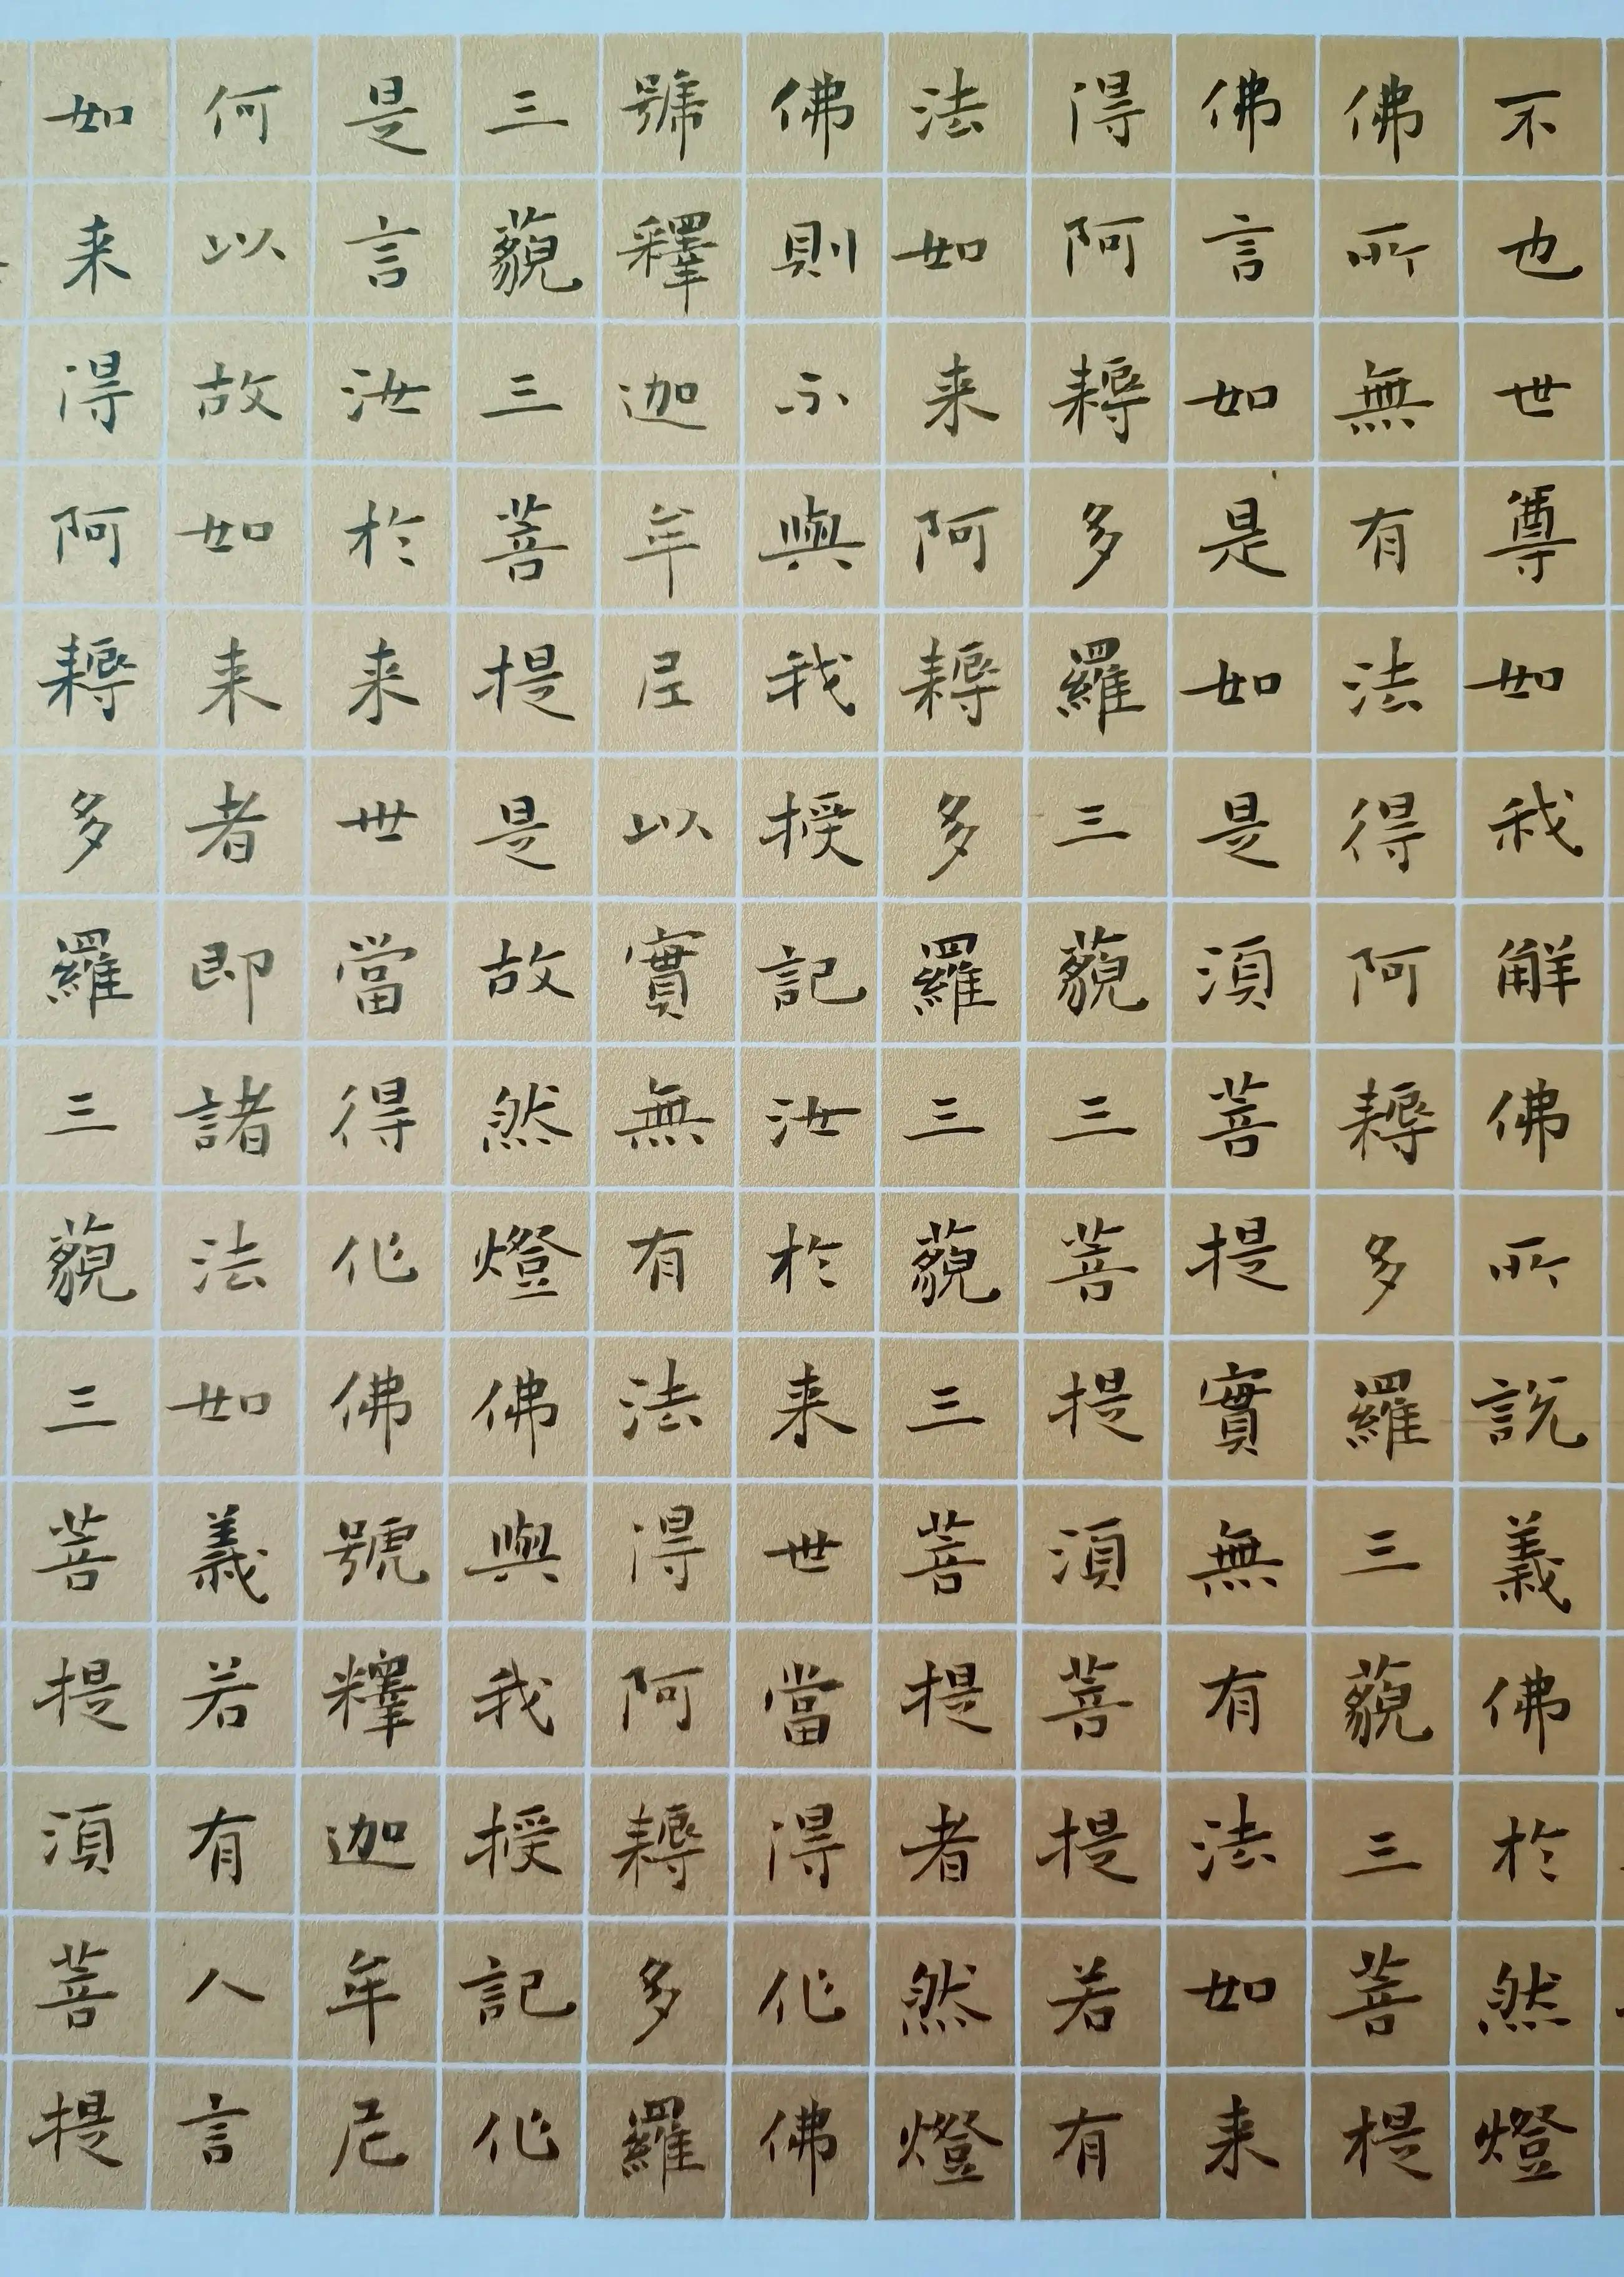 不也世尊如我解佛所說義佛於然燈
佛所無有法得阿耨多羅三藐三菩提
佛言如是如是須菩提實無有法如来
得阿耨多羅三藐三菩提須菩提若有
法如来阿耨多羅三藐三菩提者然燈
佛則不與我授記汝於来世當得作佛
號釋迦牟尼以實無有法得阿耨多羅
三藐三菩提是故然燈佛與我授記作
是言汝於来世當得作佛號釋迦牟尼
何以故如来者即諸法如義若有人言
如来得阿耨多羅三藐三菩提須菩提